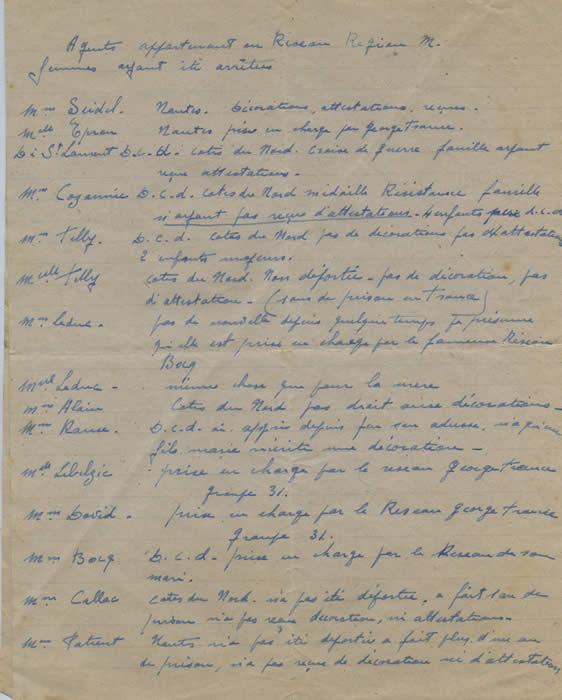 Agents appartenant au Réseau Région M.
femmes ayant été arrêtées
Mme Seidel. Nantes. Décorations, attestations, reçues.
Melle Epron Nantes prise en charge par George France.
De St Laurent D.C.d. Cotes du Nord. Croix de Guerre famille ayant
reçue attestations.
Mme Cozannic D.C.d. Cotes du Nord médaille Résistance famille
n'ayant pas reçue d'attestations. 4 enfants père D.C.D
Mme Tilly. D.C.d. Cotes du Nord pas de décorations pas d'attestation
2 enfants majeurs.
Melle Tilly Cotes du Nord. Non déportée - pas de décoration, pas
d'attestation - (1 ans de prison en France)
Mme Leduc - pas de nouvelle depuis quelque temps, je présume
qu'elle est prise en charge par le fameux Réseau
Bocq
Melle Leduc - même chose que pour la mère
Mme Alain Cotes du Nord pas droit aux décorations -
Mme Rause. D.C.d. ai appris depuis peu son adresse, n'a qu'un
fils, marié mérite une décoration -
Melle Lebelzic - prise en charge par le reseau George France
Groupe 31.
Mme David - prise en charge par le Reseau George France
Groupe 31.
Mme Bocq D.C.d - prise en charge par le Reseau de son
mari.
Mme Callac Cotes du Nord. n'a pas été déportée, a fait 1 an de
prison n'a pas reçue décoration, ni attestations -
Mme Patient Nantes n'a pas été déportée a fait plus d'une an
de prison, n'a pas reçue de décoration ni d'attestation